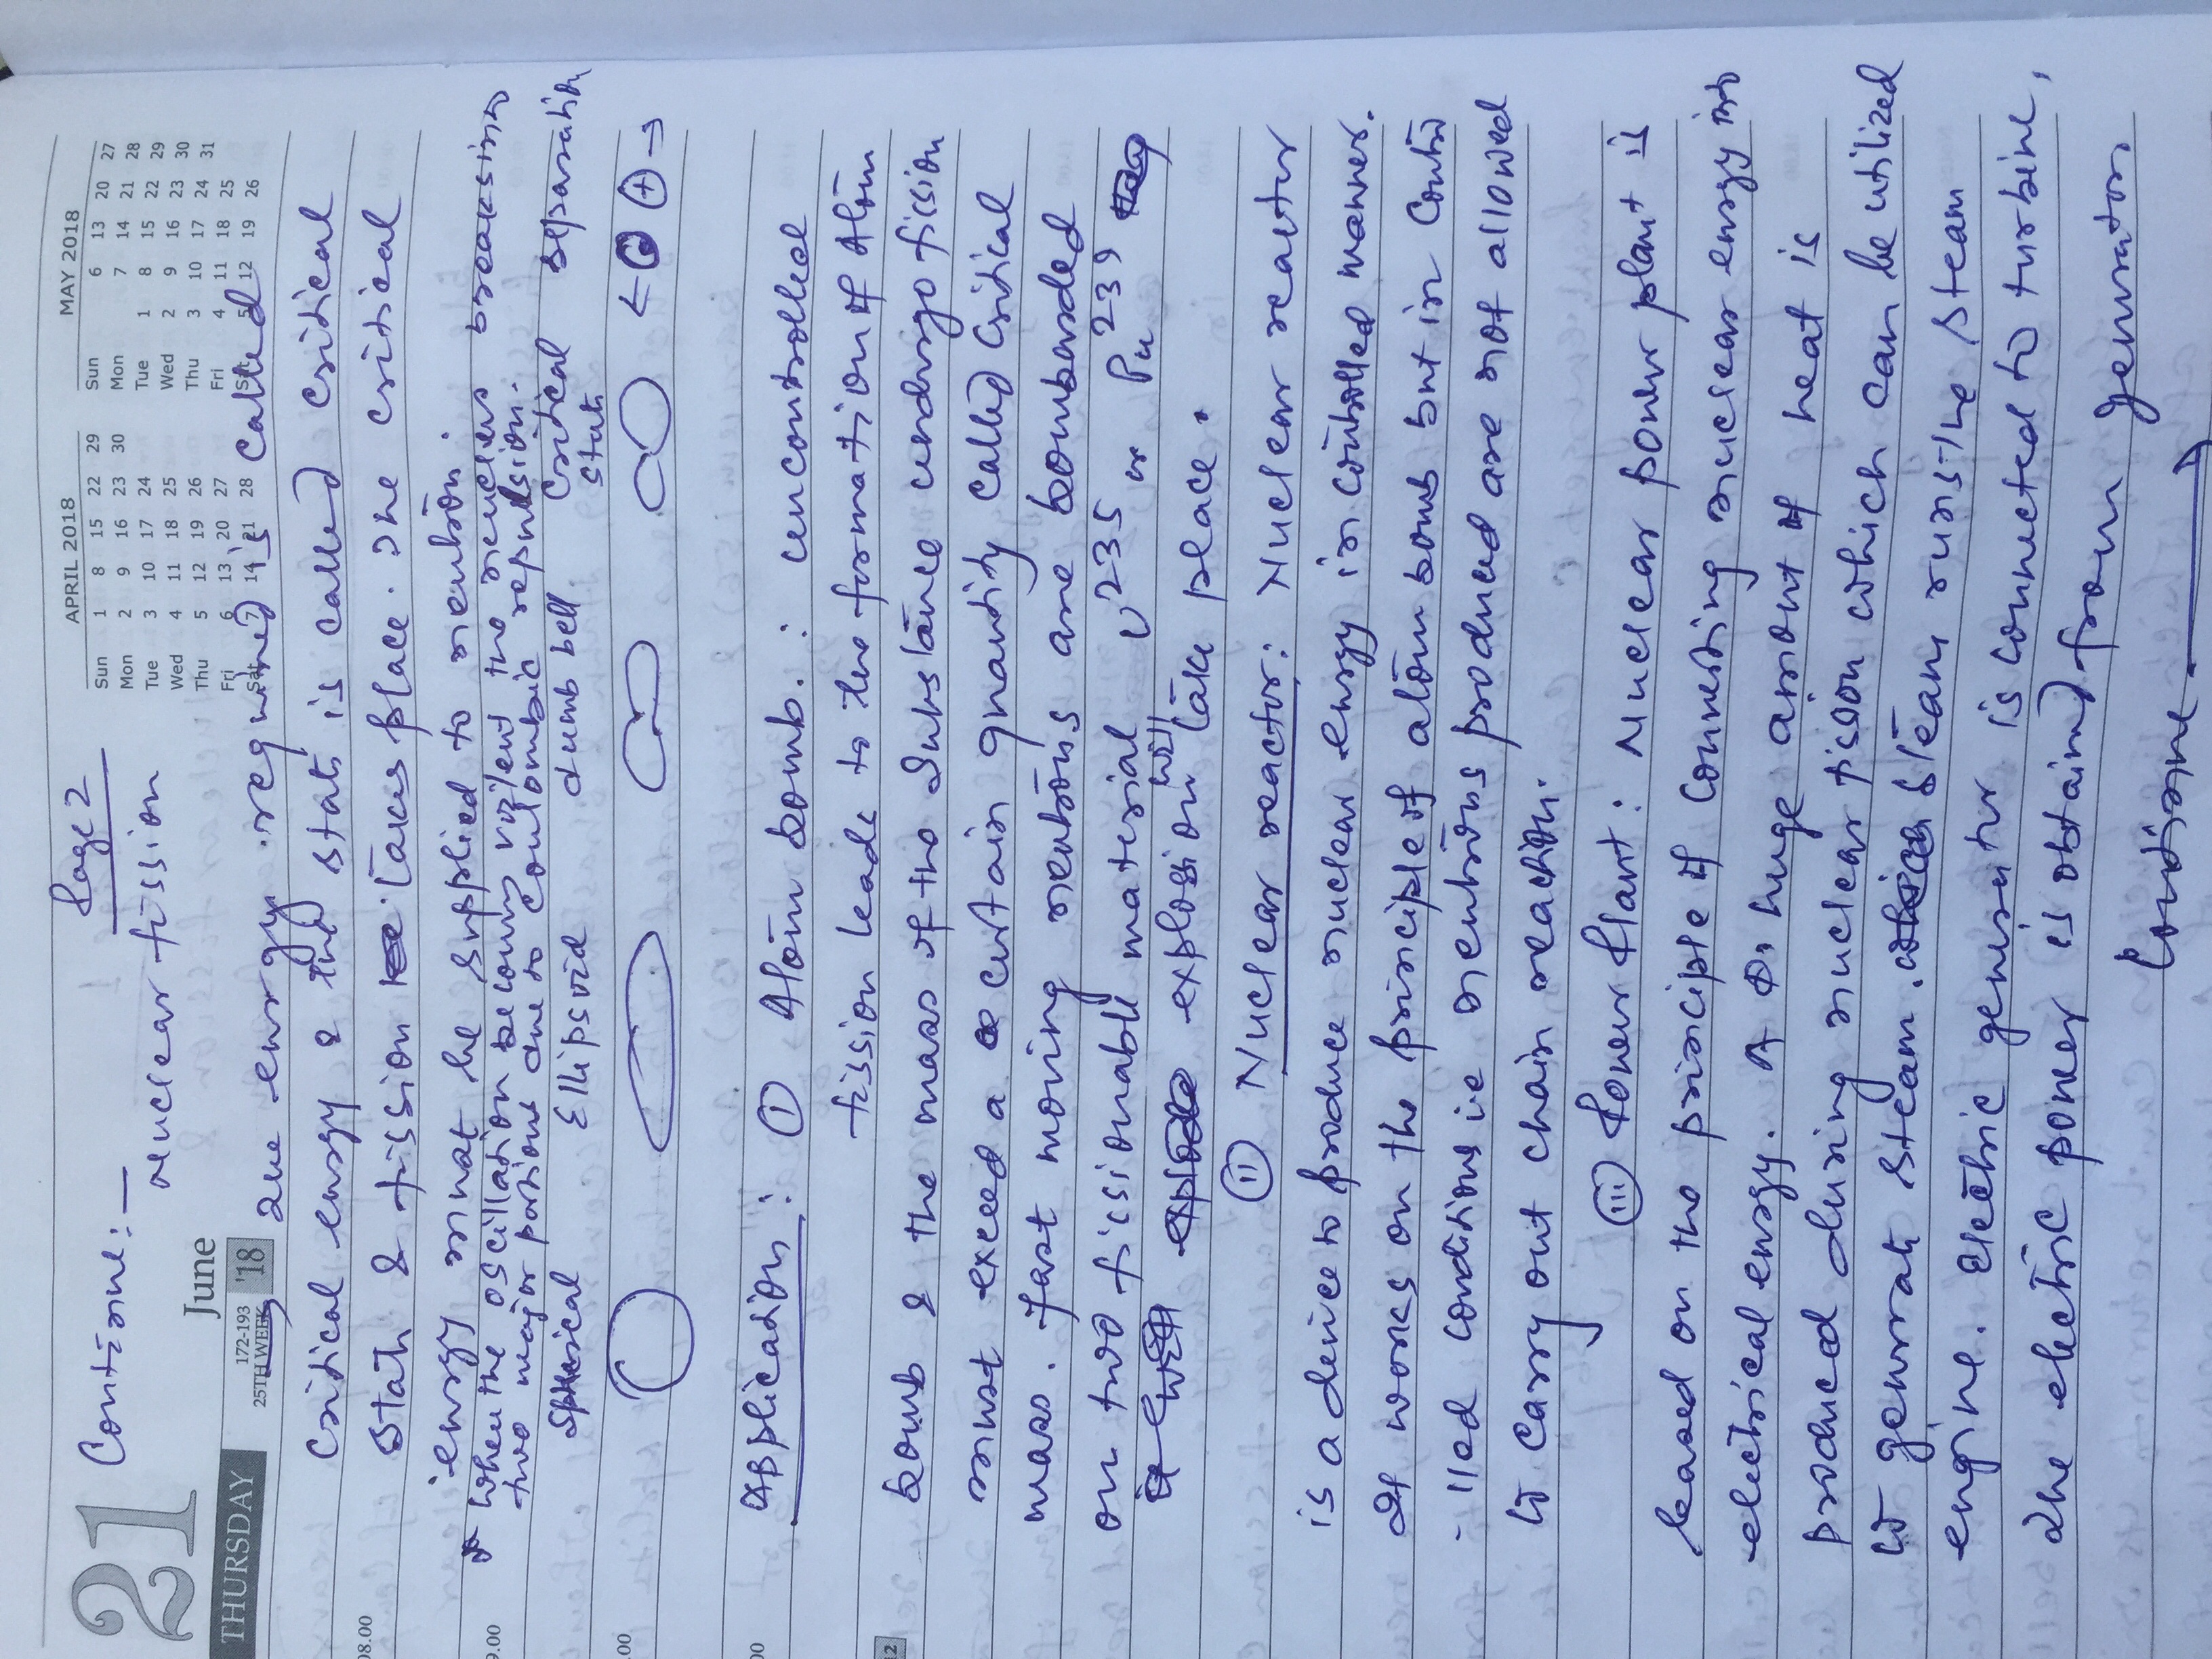 Page 2
Continue:—
nuclear fission
21
June
THURSDAY
172-193
25TH WEEK
'18
APRIL 2018
Sun 1 8 15 22 29
Mon 2 9 16 23 30
Tue 3 10 17 24
Wed 4 11 18 25
Thu 5 12 19 26
Fri 6 13 20 27
Sat 7 14 21 28
MAY 2018
Sun 6 13 20 27
Mon 7 14 21 28
Tue 1 8 15 22 29
Wed 2 9 16 23 30
Thu 3 10 17 24 31
Fri 4 11 18 25
Sat 5 12 19 26
The energy required is called
critical energy & the state is called critical
08.00
state & fission takes place. The critical
energy must be supplied to neutron.
9.00
When the oscillation becoming violent the nucleus breaks into
two major portions due to coulombic repulsion.
Spherical Ellipsoid dumb bell critical state separation
.00
+
00
Application: ① Atom bomb: uncontrolled
fission leads to the formation of Atom
12
bomb & the mass of the Substance undergo fission
must exceed a certain quantity called critical
mass. Fast moving neutrons are bombarded
on two fissionable material U235 or Pu239
explosion will take place.
(ii) Nuclear reactor: Nuclear reactor
is a device to produce nuclear energy in controlled manner.
It works on the principle of atom bomb but in contro
-lled conditions ie neutrons produced are not allowed
to carry out chain reaction.
(iii) Power Plant: Nuclear power plant is
based on the principle of converting nuclear energy into
electrical energy. A huge amount of heat is
produced during nuclear fission which can be utilized
to generate steam. Steam runs the steam
engine. Electric generator is connected to turbine,
The electric power is obtained from generator
Continue